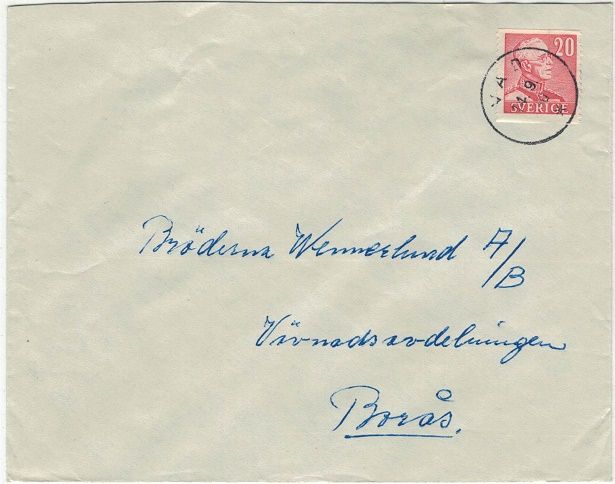 20
SVERIGE
VAD
Bröderna Wennerlund A/B
Vävnadsavdelningen
Borås.